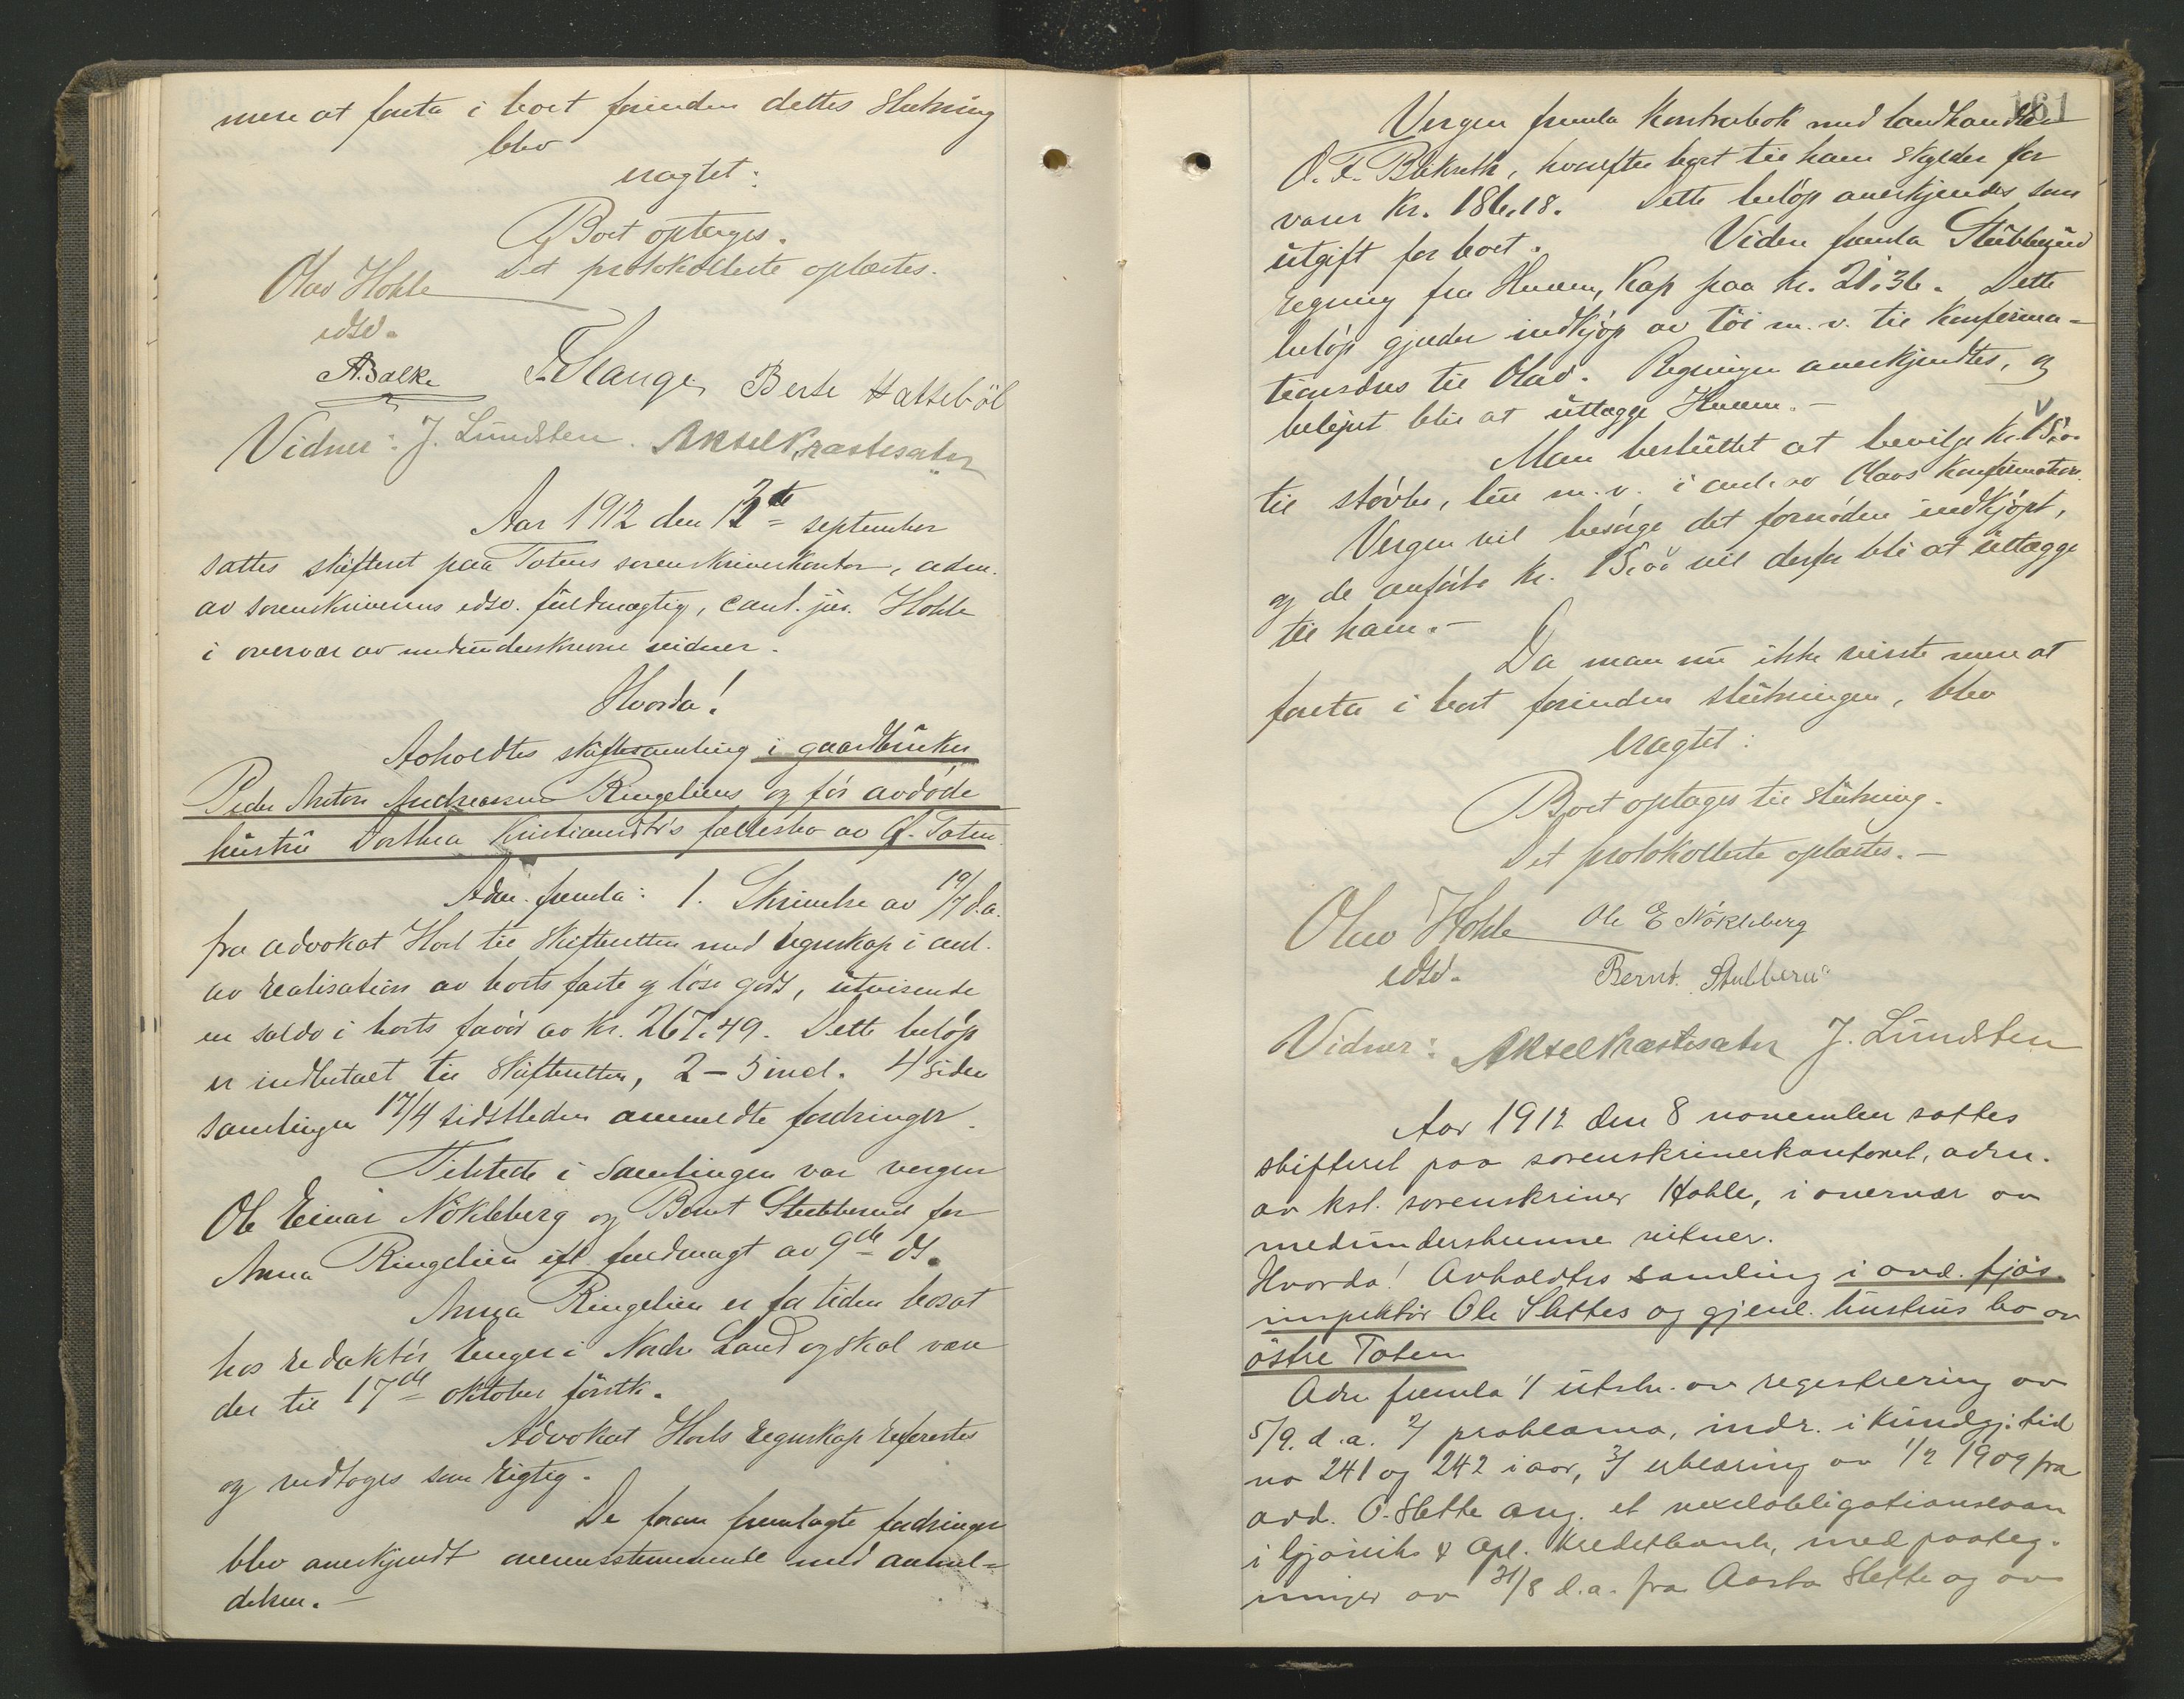 mere at foreta i boet forinden dettes slutning
blev
eragtet:
Boet optages.
Det protokollerte oplæstes.
Olav Hohle
edsv.
A. Balke Berte Hattebøl
Vidner: J. Lundsten. Aksel Kræstesæter
Aar 1912 den 13de september
sattes skifteret paa Totens sorenskriverkontor, adm.
av sorenskriverens edsv. fuldmægtig, cand. jur. Hohle
i overvær av medunderskrevne vidner.
Hvorda!
Avholdtes skiftesamling i gaardbruker
Peder Anton Andreassen Ringeliens og før avdøde
hustru Dorthea Kristiansdtr's fællesbo av Ø. Toten.
Adm. fremla: 1. Skrivelse av 19/7 d.a.
fra advokat Horl til skifteretten med regnskap i anl.
av realisation av boets faste og løse gods, utvisende
en saldo i boets favør av kr. 267.49. Dette beløp
er indbetalt til skifteretten, 2 – 5 incl. 4 siden
samlingen 17/4 sidstleden anmeldte fordringer.
Tilstede i samlingen var vergen
Ole Einar Nökleberg og Bernt Stubberud for
Anna Ringelien ifl. fuldmagt av 9de ds.
Anna Ringelien er for tiden bosat
hos redaktør Enger i Nordre Land og skal være
der til 17de oktober førstk.
Advokat Horls regnskap refereertes
og vedtoges som rigtig.
De foran fremlagte fordringer
blev anerkjendt overensstemmende med anmel-
delsen. –
161
Vergen fremla kontrabok med landhandler
O. F. Blikseth, hvorefter boet til ham skylder for
varer kr. 186.18. Dette beløp anerkjendes som
utgift for boet. Viden fremla Stubberud
regning fra Hveem, Kap paa kr. 21.36. Dette
beløp gjælder indkjøp av tøi m.v. til konfirma-
tionsdres til Olav. Regningen anerkjendtes, og
beløpet blir at utlægge Hveem. –
Man besluttet at bevilge kr. 15.00
til støvler, lue m.v. i anl. av Olavs konfirmation.
Vergen vil besørge det fornødne indkjøpt,
og de anførte kr. 15.00 vil derfor bli at utlægge
til ham. –
Da man nu ikke visste mere at
foreta i boet forinden slutningen, blev
eragtet:
Boet optages til slutning.
Det protokollerte oplæstes. –
Olav Hohle Ole E Nökleberg
edsv. Bernt. Stubberud
Vidner: Aksel Kræstesæter J. Lundsten
Aar 1912 den 8 november sattes
skifteret paa sorenskriverkontoret, adm.
av kst. sorenskriver Hohle, i overvær av
medunderskrevne vitner.
Hvorda! Avholdtes samling i avd. fjøs-
inspektør Ole Slettes og gjenl. hustrus bo av
østre Toten
Adm fremla 1/ utskr. av registrering av
5/9. d.a. 2/ proklama, indr. i kundgj. tid
no 241 og 242 iaar, 3/ erklæring av 1/2 1909 fra
avd. O. Slette ang. et vexelobligationslaan
i Gjøviks & Opl. Kreditbank, med paateg-
ninger av 31/8 d.a. fra Aasta Slette og av